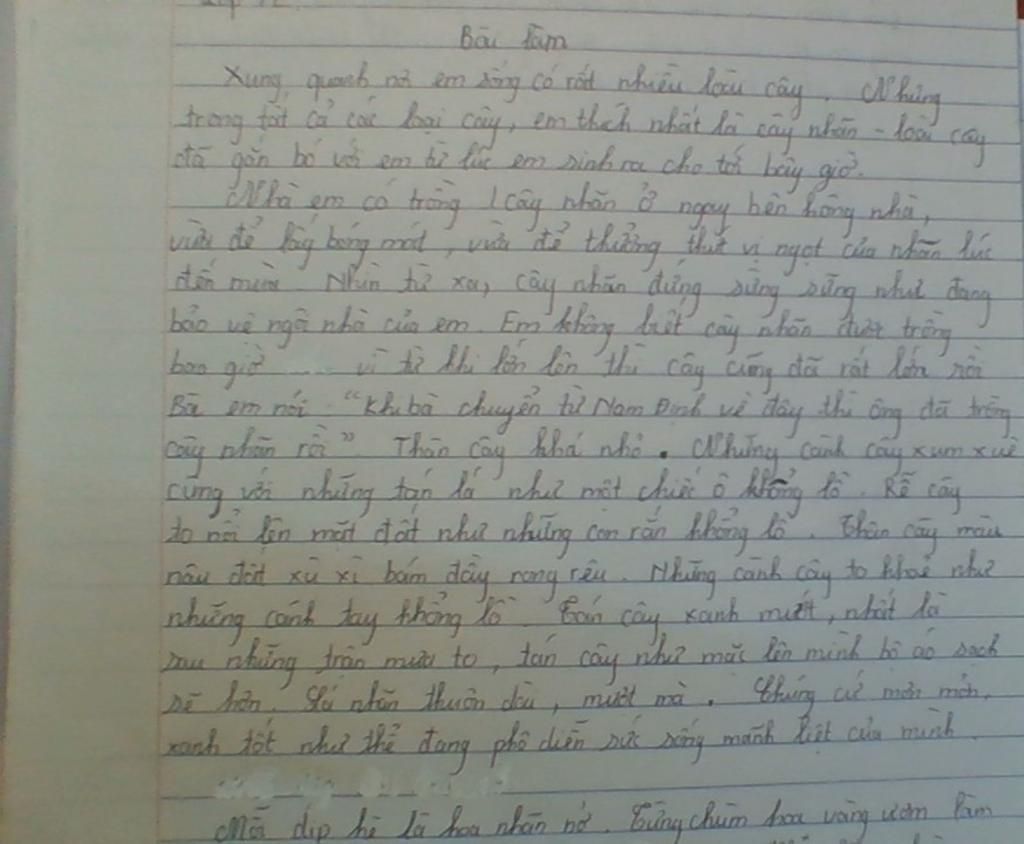 Bài làm
Xung quanh nơi em sống có rất nhiều loài cây. Nhưng
trong tất cả các loại cây, em thích nhất là cây nhãn - loài cây
đã gắn bó với em từ lúc em sinh ra cho tới bây giờ.
Nhà em có trồng 1 cây nhãn ở ngay bên hông nhà,
vừa để lấy bóng mát, vừa để thưởng thức vị ngọt của nhãn lúc
đến mùa. Nhìn từ xa, cây nhãn đứng sừng sững như đang
bảo vệ ngôi nhà của em. Em không biết cây nhãn được trồng
bao giờ vì từ khi lớn lên thì cây cũng đã rất lớn rồi
Bà em nói "Khi bà chuyển từ Nam Định về đây thì ông đã trồng
cây nhãn rồi". Thân cây khá nhỏ. Những cành cây xum xuê
cùng với những tán lá như một chiếc ô khổng lồ. Rễ cây
to nổi lên mặt đất như những con rắn khổng lồ. Thân cây màu
nâu đất xù xì bám đầy rong rêu. Những cành cây to khoẻ như
những cánh tay khổng lồ. Tán cây xanh mướt, nhất là
sau những trận mưa to, tán cây như mặc lên mình bộ áo sạch
sẽ hơn. Lá nhãn thuôn dài, mượt mà. Chúng cứ mơn mởn,
xanh tốt như thể đang phô diễn sức sống mãnh liệt của mình.
Mỗi dịp hè là hoa nhãn nở. Từng chùm hoa vàng ươm làm